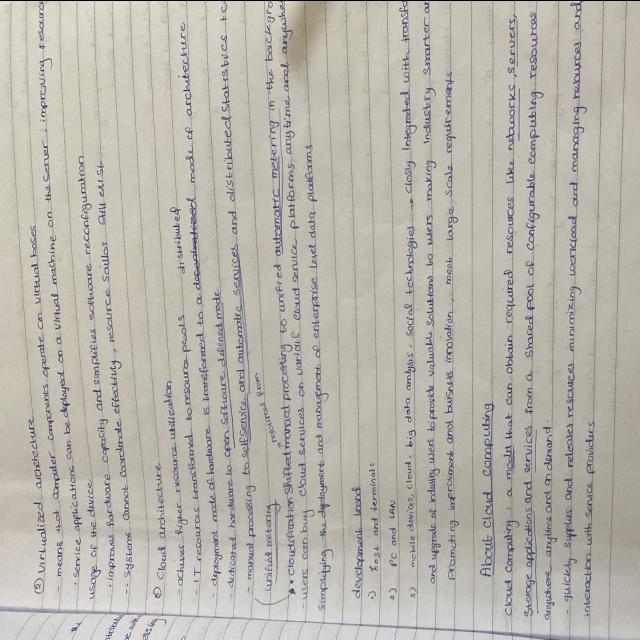 ⑤ Virtualized architecture
- means that computer components operate on virtual bases
- service applications can be deployed on a virtual machine on the server, improving resource
usage of the device
- improves hardware capacity and simplifies software reconfiguration
- systems cannot coordinate effectively, resource silos still exist
⑥ Cloud architecture
- achives higher resource utilization
- IT resources transformed to resource pools
distributed
deployment mode of hardware is transformed to a decentralized mode of architecture
- dedicated hardware to open software defined mode
- manual processing to selfservice and automatic services and distributed statistics to
unified metering
resources from
• Cloudification shifted manual processing to unified automatic metering in the backgro
- users can buy cloud services on various cloud service platforms anytime and anywhe
simplifying the deployment and management of enterprise level data platforms
development trend
1) host and terminals
2) PC and LAN
3) mobile devices, cloud, big data analysis, social technologies → closly integrated with transfo
and upgrade of industry users to provide valuable solutions to users making industry smarter an
promoting improvement and business innovation, meet large scale requirements
About Cloud Computing
Cloud Computing, a model that can obtain required resources like networks, servers,
storage applications and services from a shared pool of configurable computing resources
anywhere, anytime and on demand.
- quickly supplies and releases resources minimizing workload and managing resources and
interaction with service providers